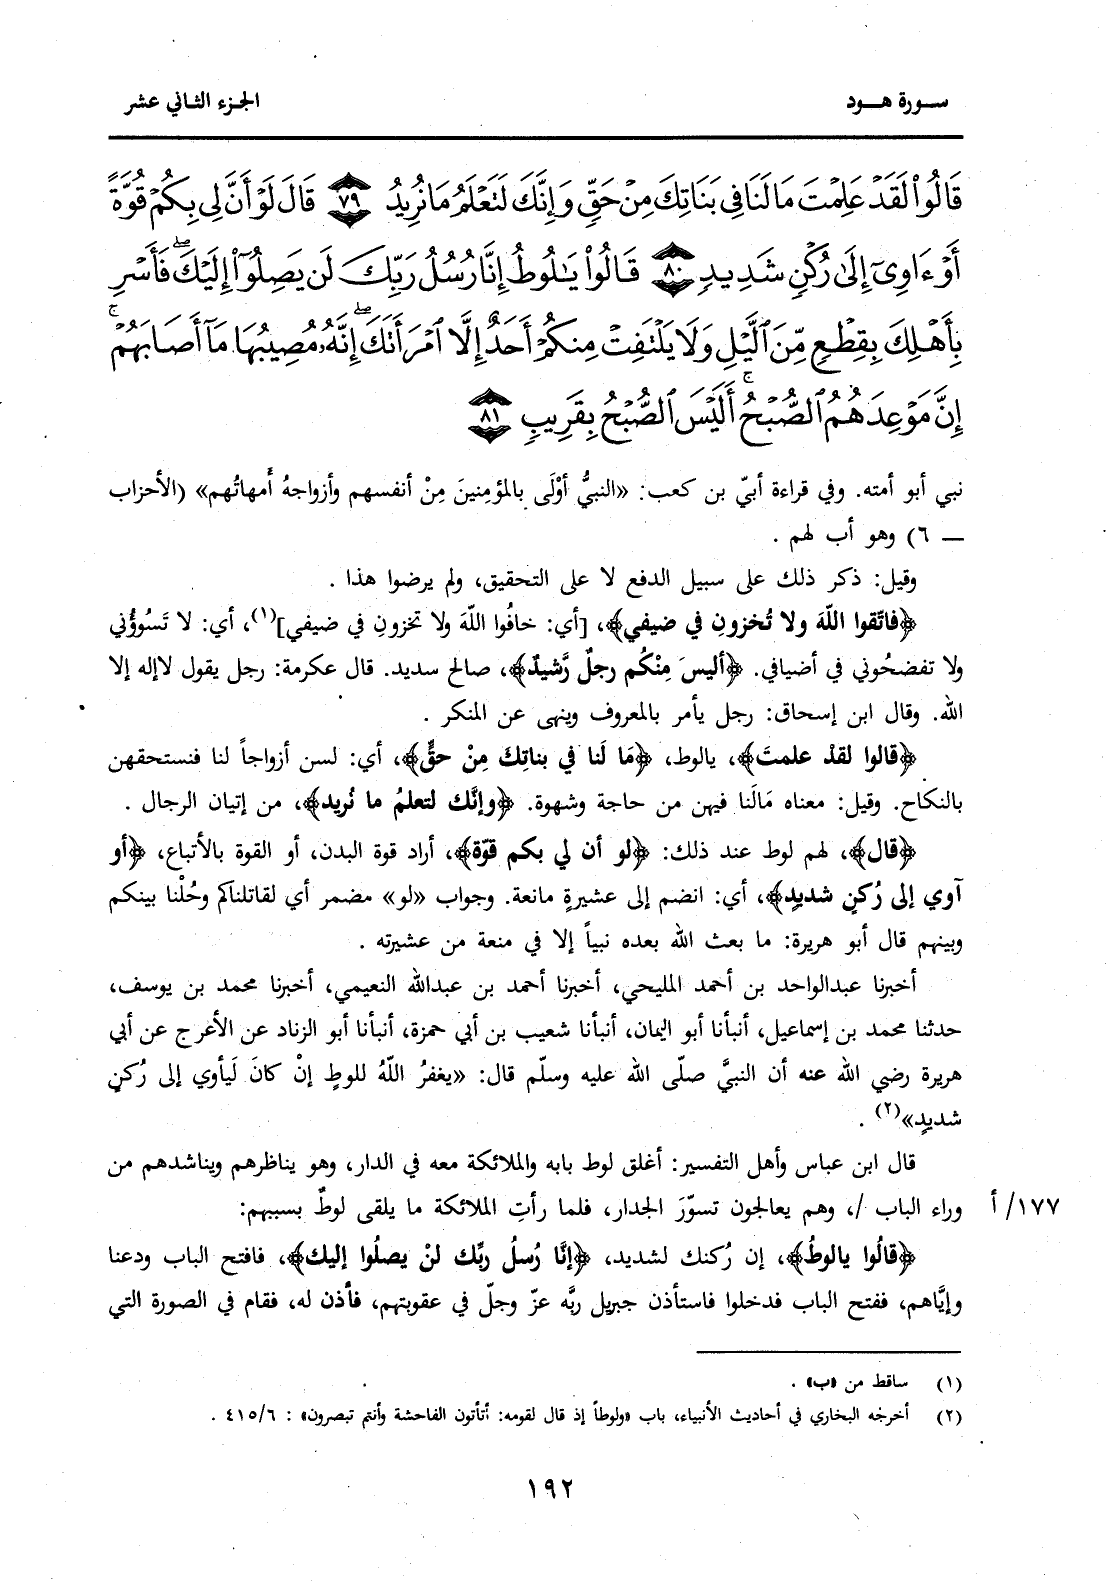 سورة هود
الجزء الثاني عشر
قَالُوا۟ لَقَدْ عَلِمْتَ مَا لَنَا فِى بَنَاتِكَ مِنْ حَقٍّ وَإِنَّكَ لَتَعْلَمُ مَا نُرِيدُ ٧٩ قَالَ لَوْ أَنَّ لِى بِكُمْ قُوَّةً
أَوْ ءَاوِىٓ إِلَىٰ رُكْنٍ شَدِيدٍ ٨٠ قَالُوا۟ يَٰلُوطُ إِنَّا رُسُلُ رَبِّكَ لَن يَصِلُوٓا۟ إِلَيْكَ ۖ فَأَسْرِ
بِأَهْلِكَ بِقِطْعٍ مِّنَ ٱلَّيْلِ وَلَا يَلْتَفِتْ مِنكُمْ أَحَدٌ إِلَّا ٱمْرَأَتَكَ ۖ إِنَّهُۥ مُصِيبُهَا مَآ أَصَابَهُمْ ۚ
إِنَّ مَوْعِدَهُمُ ٱلصُّبْحُ ۚ أَلَيْسَ ٱلصُّبْحُ بِقَرِيبٍ ٨١
نبي أبو أمته. وفي قراءة أبيّ بن كعب: «النبيُّ أوْلَى بالمؤمِنينَ مِنْ أنفسهم وأزواجهُ أُمهاتُهم» (الأحزاب
— ٦) وهو أب لهم .
وقيل: ذكر ذلك على سبيل الدفع لا على التحقيق، ولم يرضوا هذا .
﴿فاتّقوا اللّهَ ولا تُخزونِ في ضيفي﴾، [أي: خافُوا اللّهَ ولا تخزونِ في ضيفي](١)، أي: لا تَسُوؤُني
ولا تفضحُوني في أضيافي. ﴿أليسَ مِنْكُم رجلٌ رَّشيدٌ﴾، صالح سديد. قال عكرمة: رجل يقول لاإله إلا
الله. وقال ابن إسحاق: رجل يأمر بالمعروف وينهى عن المنكر .
﴿قالوا لقدْ علمتَ﴾، يالوط، ﴿مَا لَنا في بناتِكَ مِنْ حقٍّ﴾، أي: لسن أزواجاً لنا فنستحقهن
بالنكاح. وقيل: معناه مَالَنا فيهن من حاجة وشهوة. ﴿وإنَّك لتعلمُ ما نُريد﴾، من إتيان الرجال .
﴿قال﴾، لهم لوط عند ذلك: ﴿لو أن لي بكم قوّة﴾، أراد قوة البدن، أو القوة بالأتباع، ﴿أو
آوي إلى رُكنٍ شديدٍ﴾، أي: انضم إلى عشيرةٍ مانعة. وجواب «لو» مضمر أي لقاتلناكم وحُلْنا بينكم
وبينهم قال أبو هريرة: ما بعث الله بعده نبياً إلا في منعة من عشيرته .
أخبرنا عبدالواحد بن أحمد المليحي، أخبرنا أحمد بن عبدالله النعيمي، أخبرنا محمد بن يوسف،
حدثنا محمد بن إسماعيل، أنبأنا أبو اليمان، أنبأنا شعيب بن أبي حمزة، أنبأنا أبو الزناد عن الأعرج عن أبي
هريرة رضي الله عنه أن النبيَّ صلّى الله عليه وسلّم قال: «يغفرُ اللّهُ للوطٍ إنْ كانَ لَيأوي إلى رُكنٍ
شديدٍ»(٢) .
قال ابن عباس وأهل التفسير: أغلق لوط بابه والملائكة معه في الدار، وهو يناظرهم ويناشدهم من
وراء الباب /، وهم يعالجون تسوّرَ الجدار، فلما رأتِ الملائكة ما يلقى لوطٌ بسببهم:
١٧٧/ أ
﴿قالُوا يالوطُ﴾، إن رُكنك لشديد، ﴿إنَّا رُسلُ ربِّك لنْ يصلُوا إليك﴾، فافتح الباب ودعنا
وإيَّاهم، ففتح الباب فدخلوا فاستأذن جبريل ربَّه عزّ وجلّ في عقوبتهم، فأذن له، فقام في الصورة التي
(١) ساقط من «ب» .
(٢) أخرجه البخاري في أحاديث الأنبياء، باب «ولوطاً إذ قال لقومه: أتأتون الفاحشة وأنتم تبصرون» : ٤١٥/٦ .
١٩٢